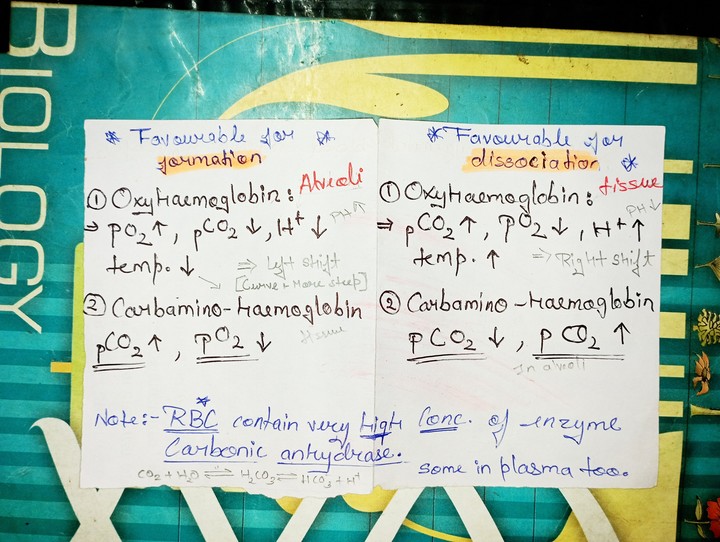 BIOLOGY
* Favourable for *
formation
① OxyHaemoglobin: Alveoli
⇒ pO2↑, pCO2↓, H+↓ PH↑
temp.↓ ⇒ Left shift
[Curve = More steep]
② Carbamino-Haemoglobin
tissue
pCO2↑, pO2↓
* Favourable for
dissociation *
① OxyHaemoglobin: tissue
PH↓
⇒ pCO2↑, pO2↓, H+↑
temp.↑ ⇒ Right shift
② Carbamino-Haemoglobin
pCO2↓, pO2↑
In alveoli
Note:- RBC* contain very high Conc. of enzyme
Carbonic anhydrase. some in plasma too.
CO2 + H2O ⇌ H2CO3 ⇌ HCO3 + H+